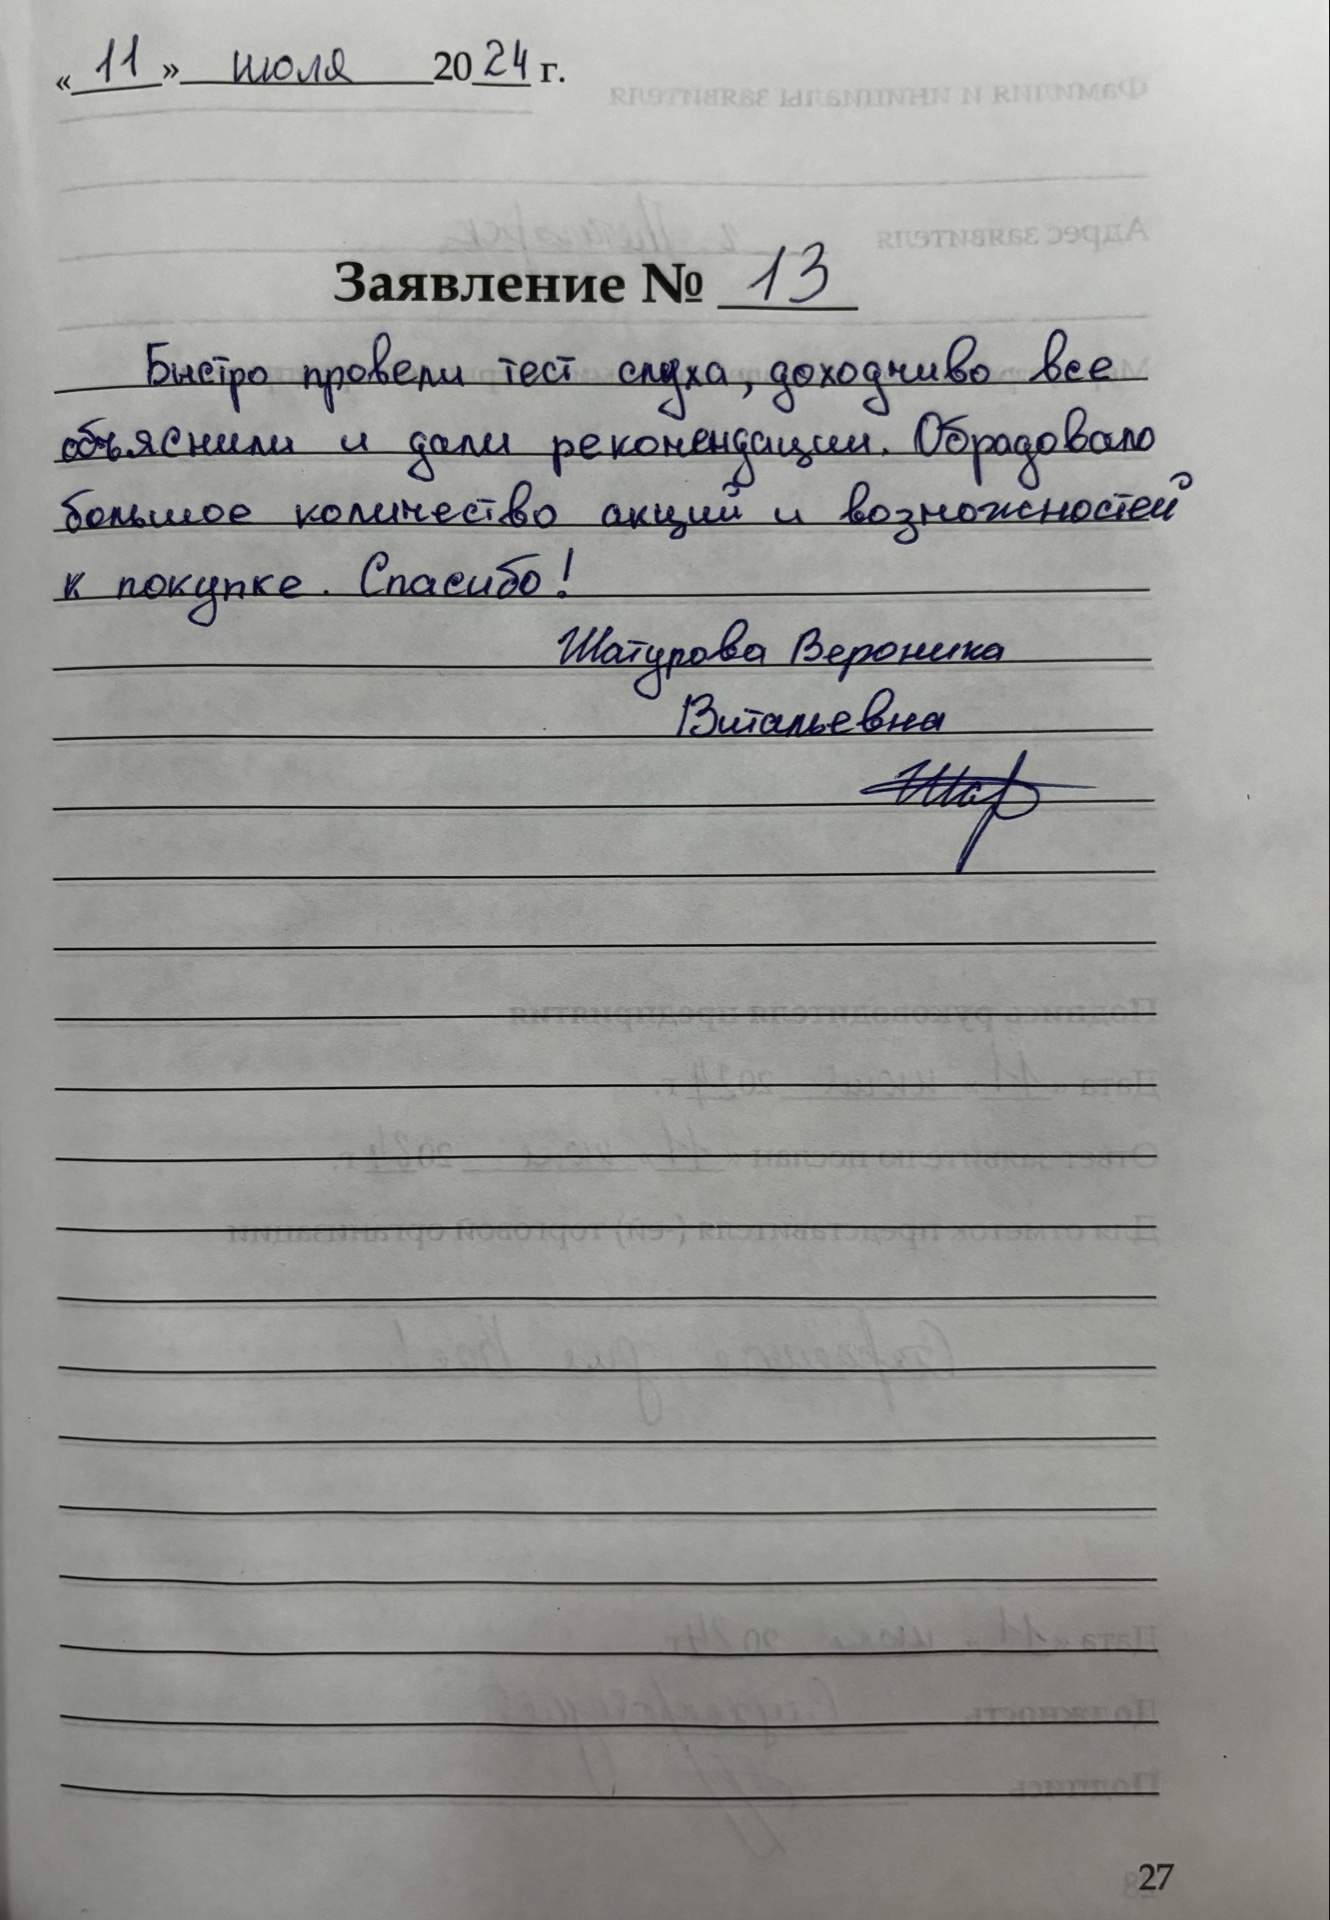 «11» июля 2024 г.
Заявление № 13
Быстро провели тест слуха, доходчиво все
объяснили и дали рекомендации. Обрадовало
большое количество акций и возможностей
к покупке. Спасибо!
Шатурова Вероника
Витальевна
27